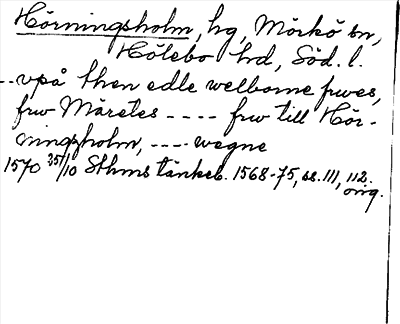 Hörningsholm, hg, Mörkö sn,
Hölebo hd, Söd. l.
--vpå then edle welborne frwes,
frw Märetes ---- frw till Hör-
ningzholm, ---- wegne
1570 25/10 Sthms tänkeb. 1568-75, ss. 111, 112.
orig.